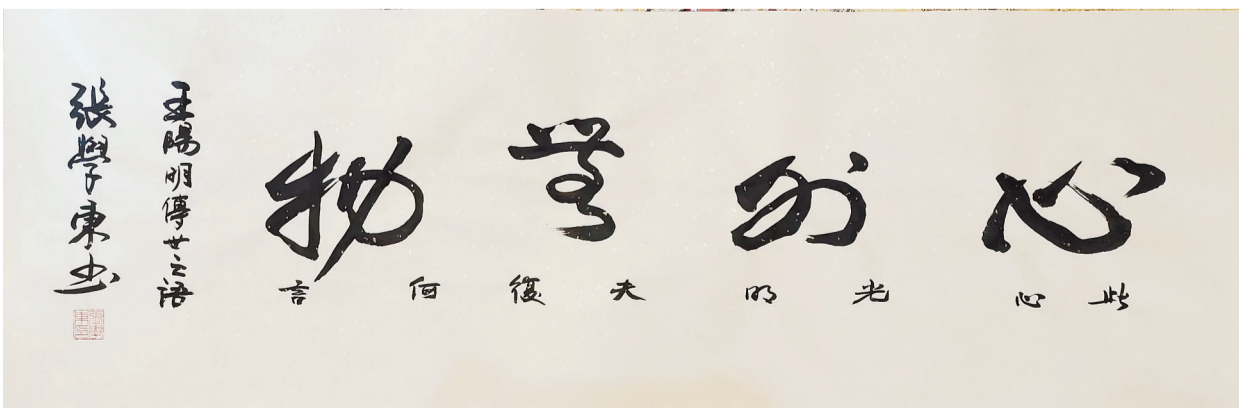 心外無物
此心光明夫復何言
王陽明傳世之語
張學東书